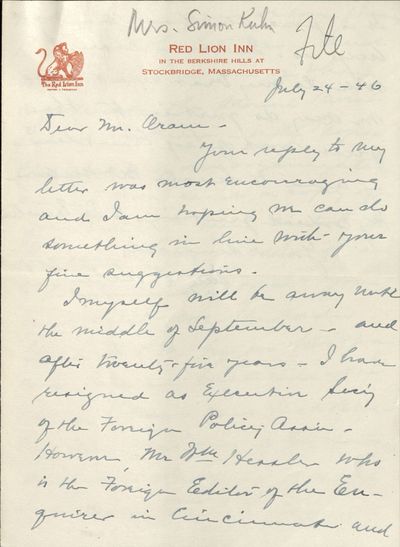 Mrs. Simon Kuhn
File
The Red Lion Inn
RED LION INN
IN THE BERKSHIRE HILLS AT
STOCKBRIDGE, MASSACHUSETTS
July 24 - 46
Dear Mr. Oram -
Your reply to my
letter was most encouraging
and I am hoping we can do
something in line with your
fine suggestions.
I myself will be away until
the middle of September - and
after twenty-five years - I have
resigned as Executive Sec'y
of the Foreign Policy Assn -
However Mr Wm Hessler who
is the Foreign Editor of the En-
quirer in Cincinnati and